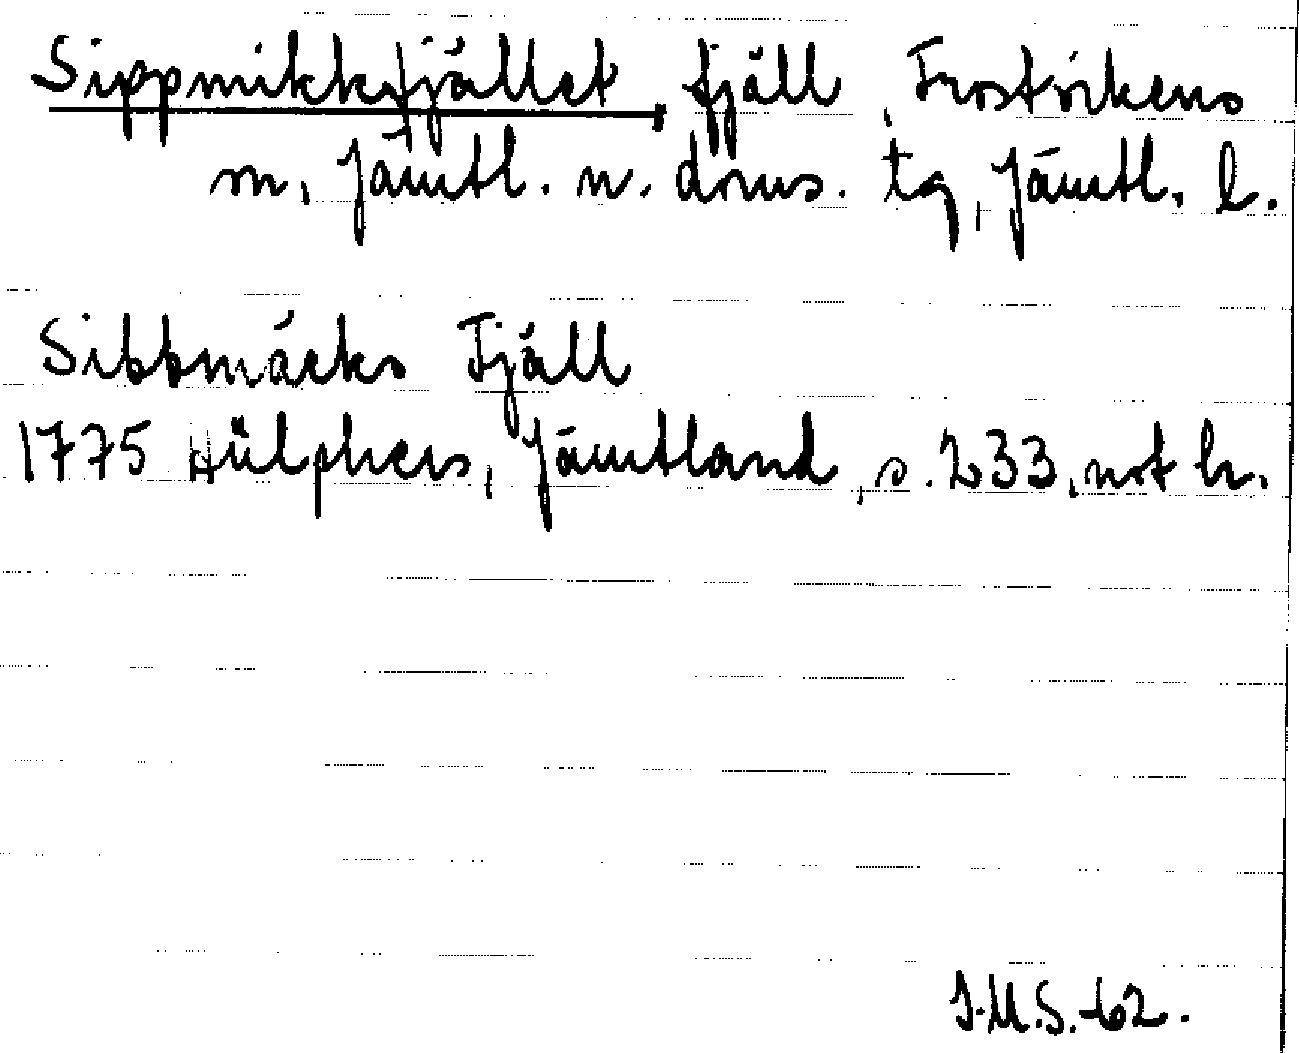 Sippmikksfjället, fjäll, Frostvikens
m, Jämtl. n. doms. tg, Jämtl. l.
Sibbmäcks Fjäll
1775 Hülphers, Jämtland, s. 233, not h.
J.M.S.-62.